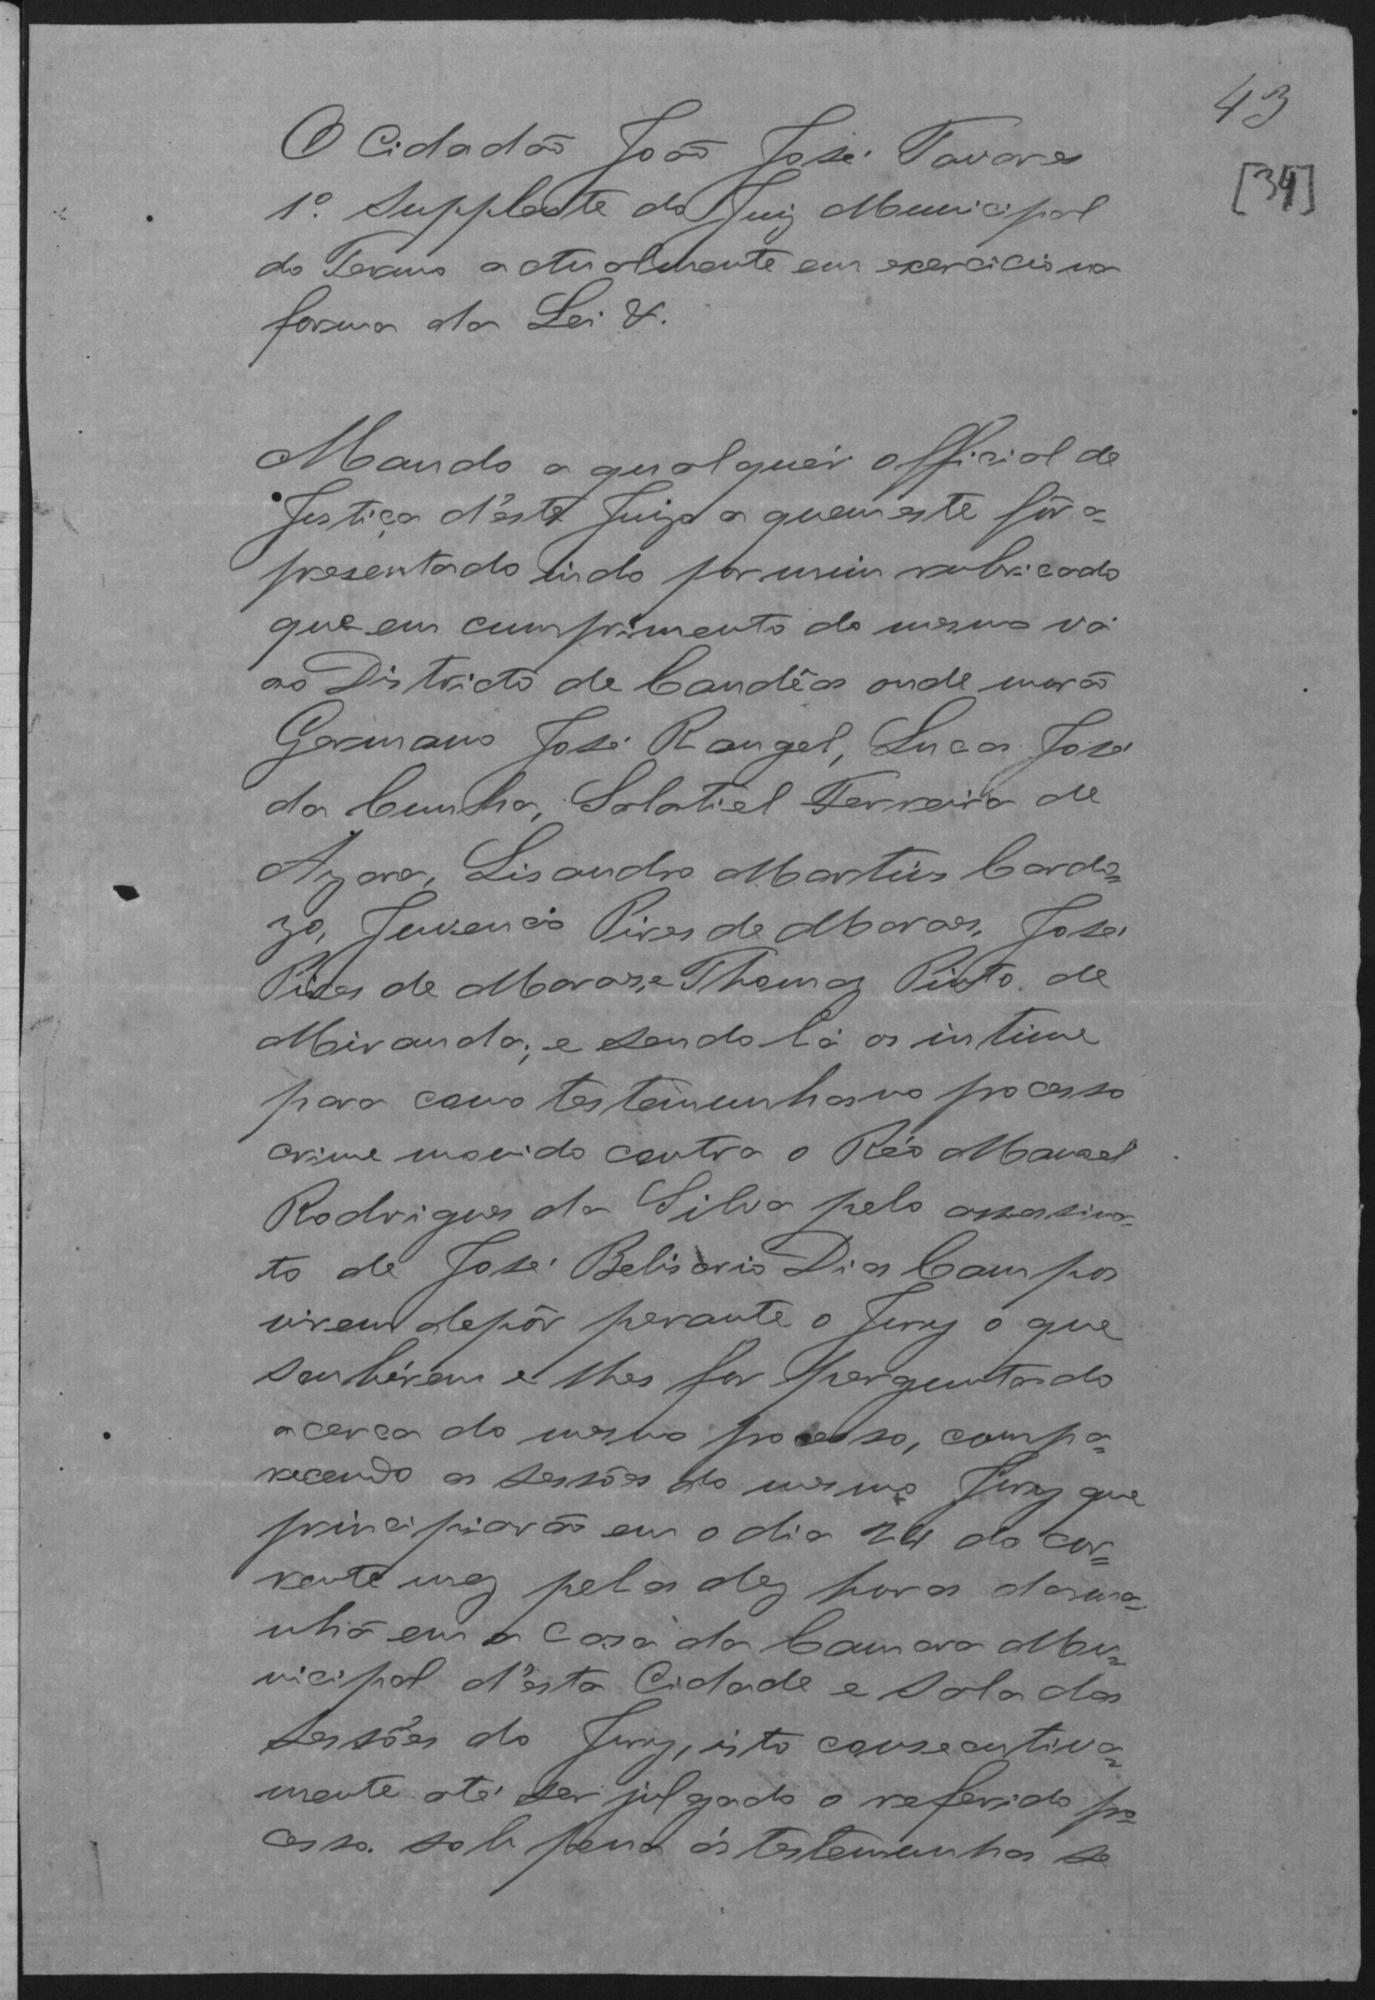 43
[34]
O Cidadão João José Tavares
1º. Supplente do Juiz Municipal
do Termo actualmente em exercicio na
forma da Lei &.
Mando a qualquér official de
Justiça d'éste Juizo a quem este fôr a=
presentado indo por mim rubricado
que em cumprimento do mesmo vá
ao Districto de Candêas onde morão
Germano José Rangel, Lucas José
da Cunha, Salatiel Ferreira de
Azara, Lisandro Martins Cardo=
zo, Juvencio Pires de Moraes, José
Pires de Moraes, e Thomaz Pinto de
Miranda; e sendo lá os intime
para como testemunhas no processo
crime movido contra o Réo Manoel
Rodrigues da Silva pelo assassina-
to de José Belisario Dias Campos
virem depôr perante o Jury o que
souhérem e lhes for perguntado
acerca do mesmo processo, compa=
recendo as sessões do mesmo Jury que
principiarão em o dia 24 do cor=
rente mez pelas dez horas da ma=
nhã em a Casa da Camara Mu=
nicipal d'ésta Cidade e sala das
Sessões do Jury, isto consecutiva=
mente até ser julgado o referido pro=
cesso. sob pena ás testemunhas se